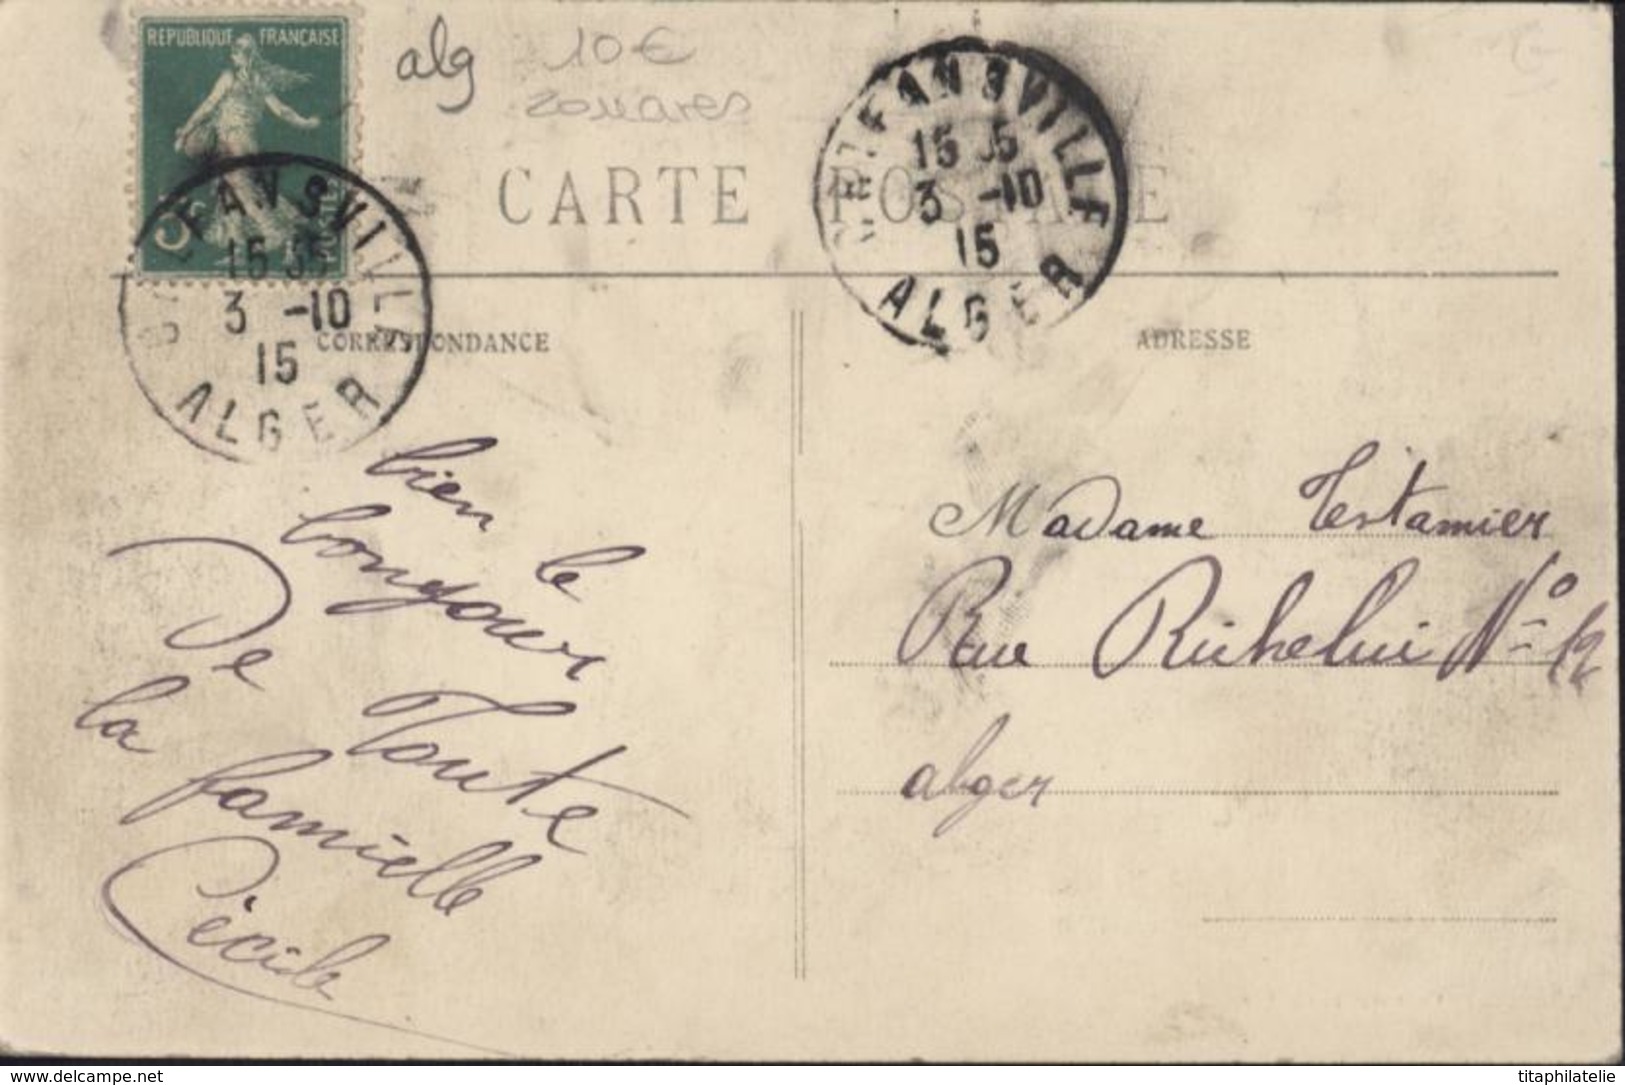 REPUBLIQUE FRANÇAISE
POSTES
5
alg
10€
zouaves
ORLÉANSVILLE
15 35
3 -10
15
ALGER
ORLÉANSVILLE
15 35
3 -10
15
ALGER
CARTE POSTALE
CORRESPONDANCE
ADRESSE
bien le
bonjour
De Toute
la famielle
Cécile
Madame Testamier
Rue Richeliu N° 12
alger
www.delcampe.net
titaphilatelie